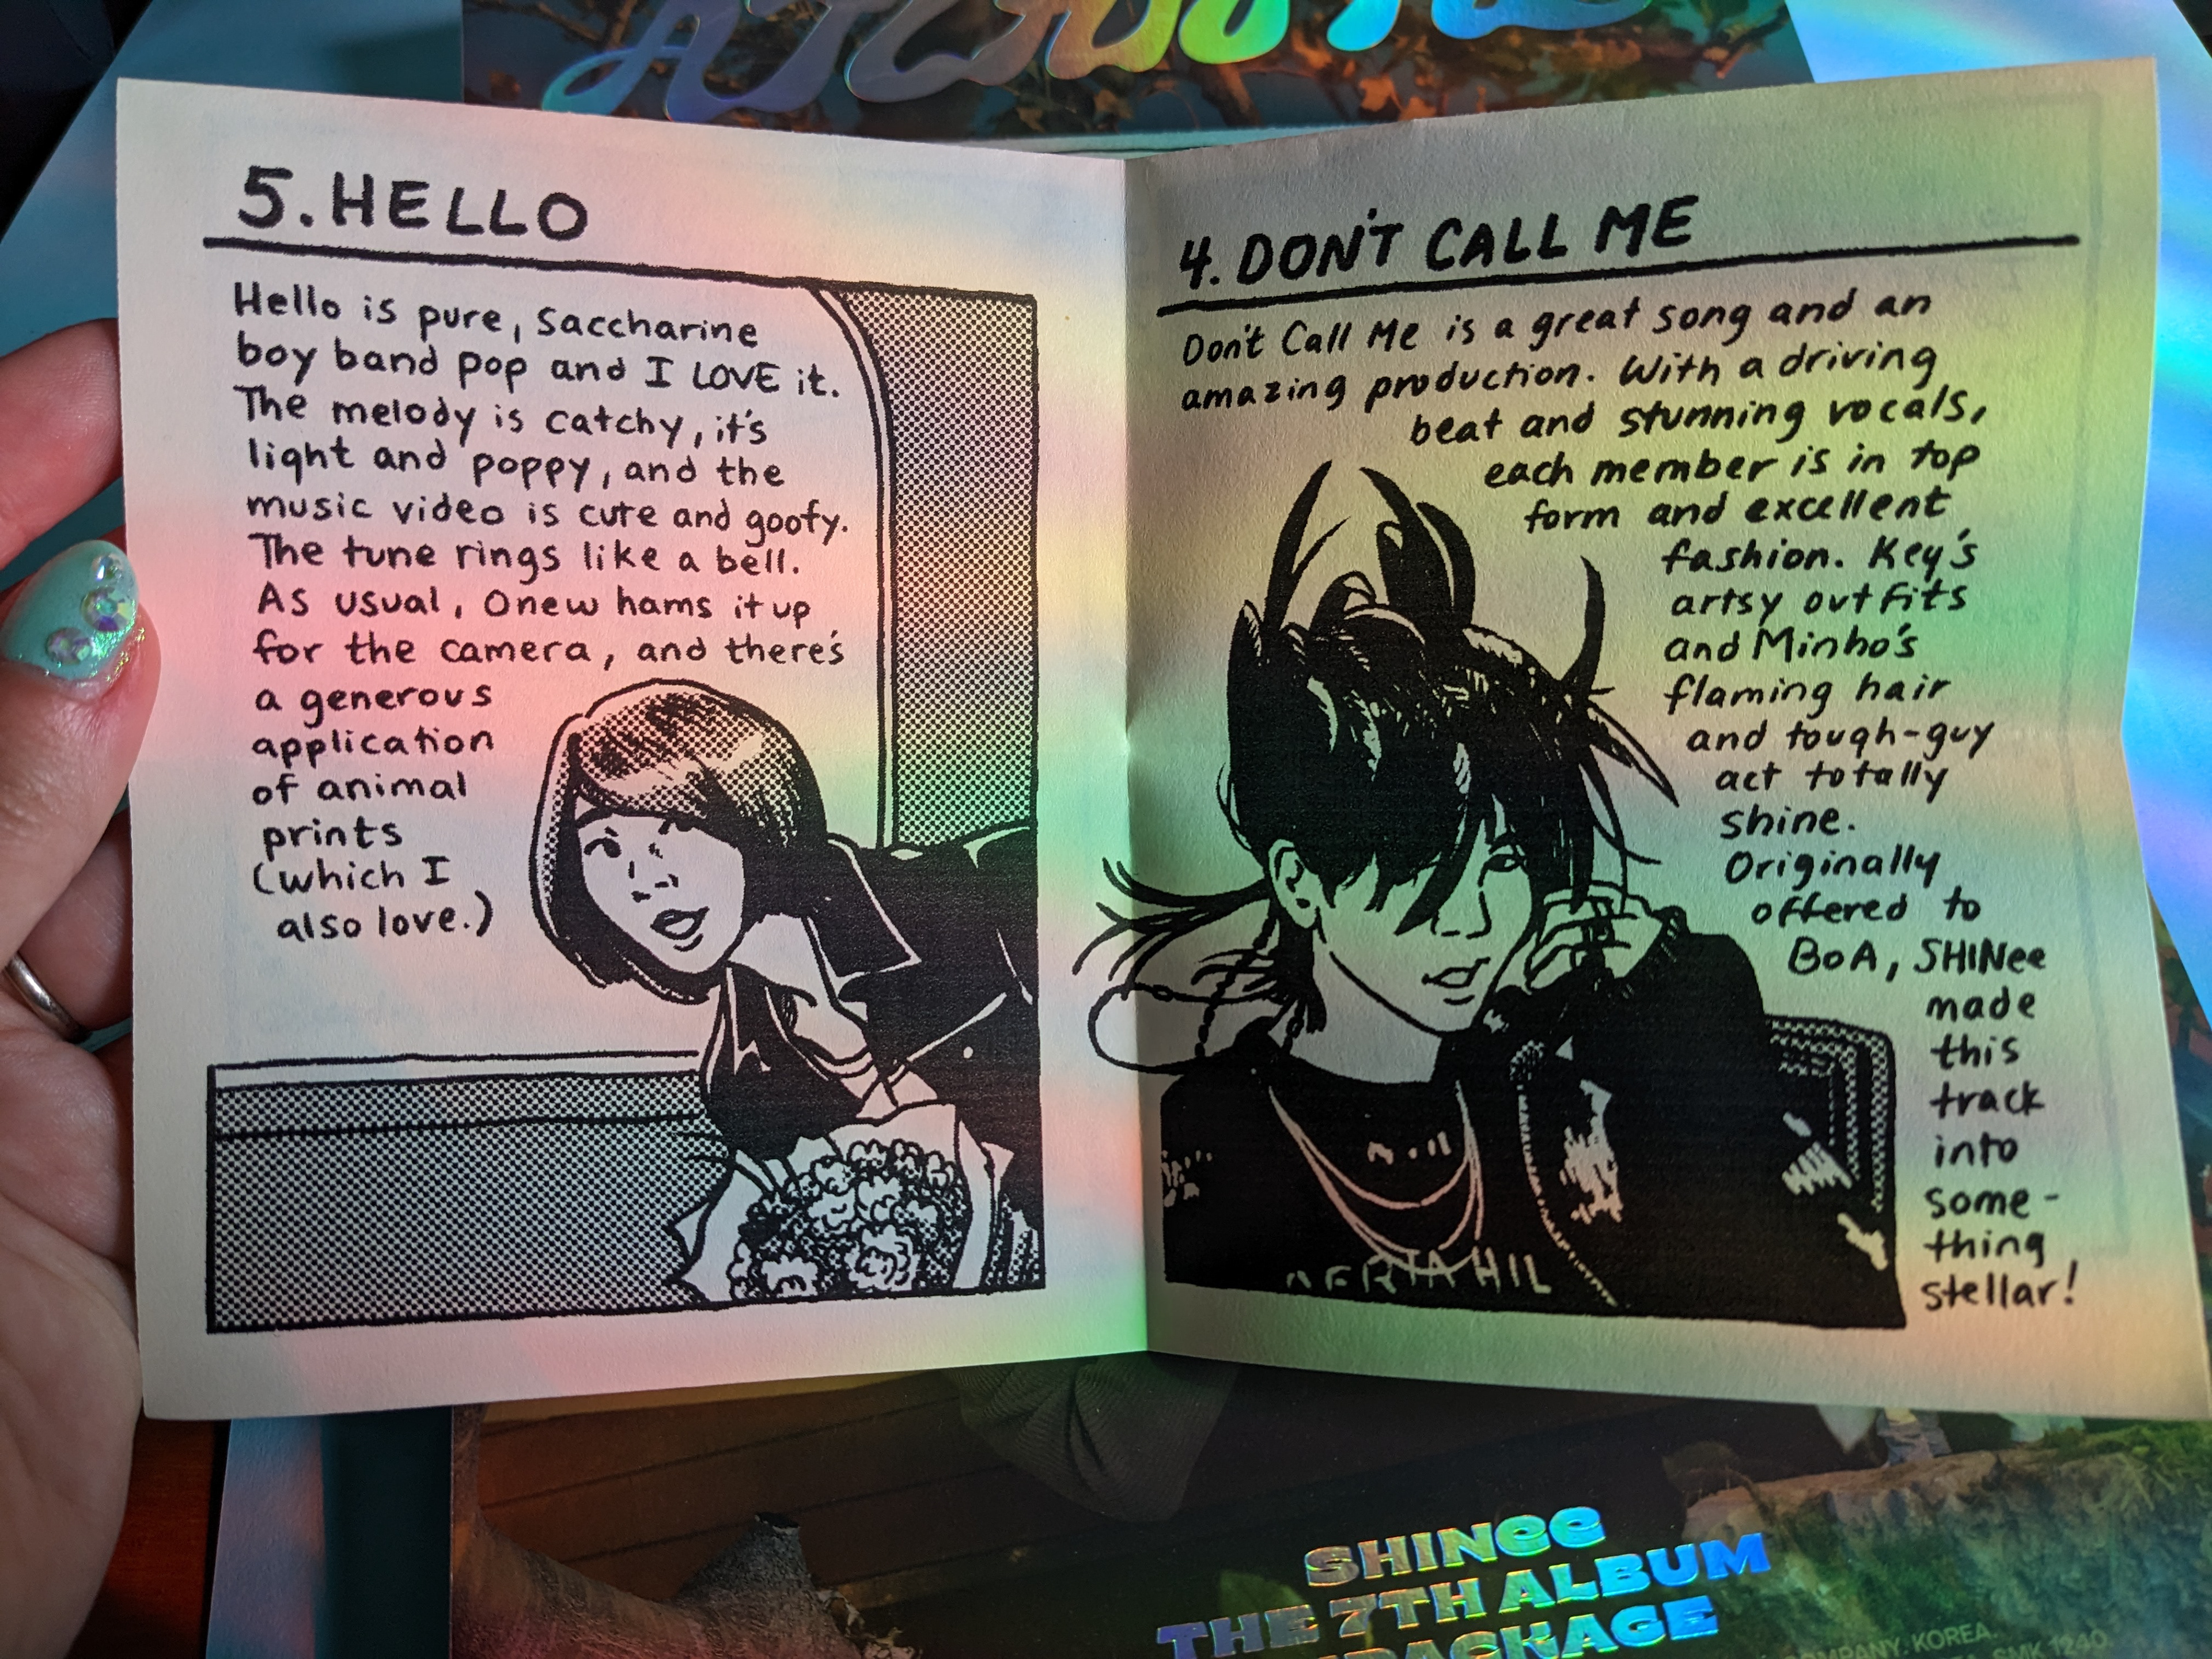 5. HELLO
Hello is pure, saccharine
boy band pop and I LOVE it.
The melody is catchy, it's
light and poppy, and the
music video is cute and goofy.
The tune rings like a bell.
As usual, Onew hams it up
for the camera, and there's
a generous
application
of animal
prints
(which I
also love.)
4. DON'T CALL ME
Don't Call Me is a great song and an
amazing production. With a driving
beat and stunning vocals,
each member is in top
form and excellent
fashion. Key's
artsy outfits
and Minho's
flaming hair
and tough-guy
act totally
shine.
Originally
offered to
BoA, SHINee
made
this
track
into
some-
thing
stellar!
SHINee
THE 7TH ALBUM
REPACKAGE
COMPANY. KOREA.
SMK 1240